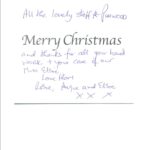 All the lovely staff
Merry Christmas
and thanks for all your hard
work & your care of our
Miss Ellen
Love from
xxx